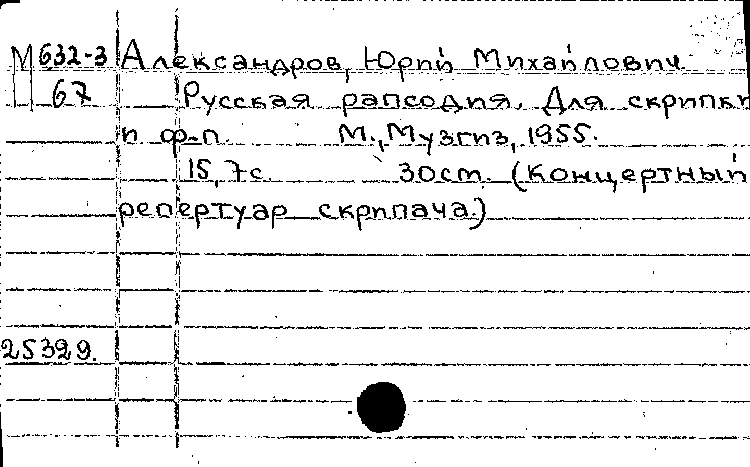 М 632-3 Александров, Юрий Михайлович
67 Русская рапсодия. Для скрипки
и ф-п. М., Музгиз, 1955.
15, 7 с. 30 см. (Концертный
репертуар скрипача.)
25329.